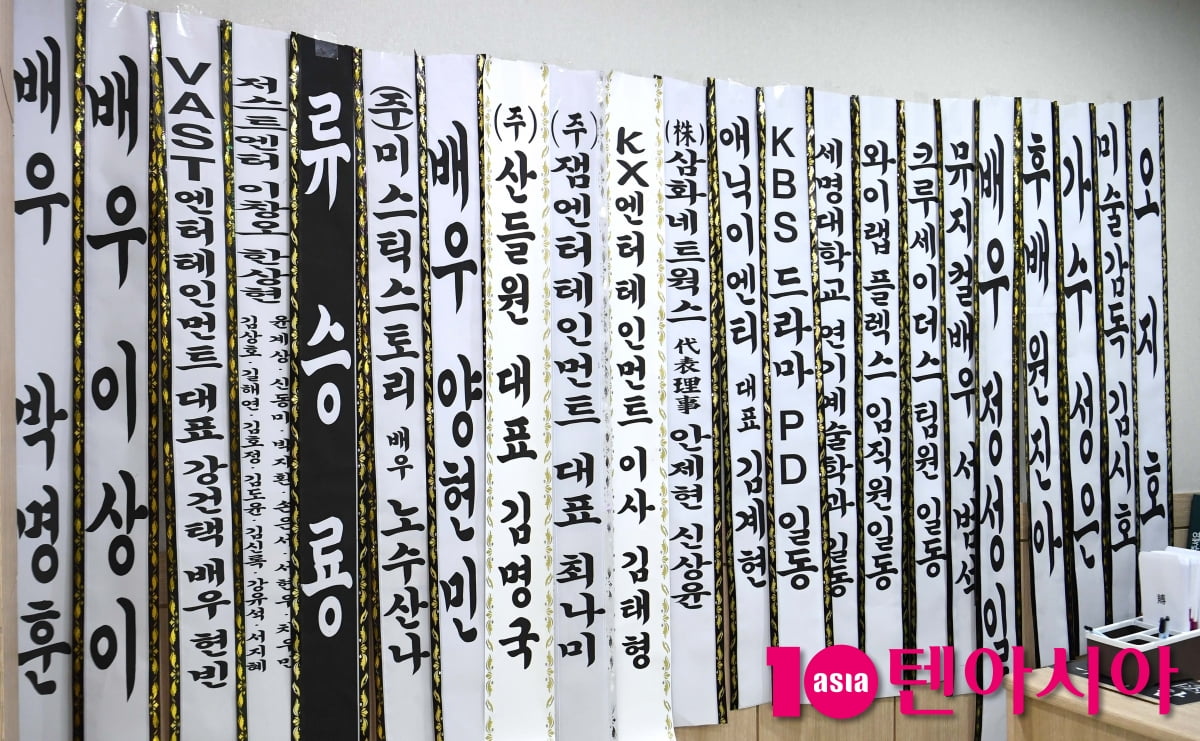 배우 박명훈
배우 이상이
VAST엔터테인먼트 대표 강건택 배우 현빈
저스트엔터 이창오 한상현
윤계상·신동미·박지환·손은서·서현우·차우민
김상호·길해연·김호정·김도윤·김신록·강유석·서지혜
류승룡
(주)미스틱스토리 배우 노수산나
배우 양현민
(주)산들원 대표 김명국
(주)잼엔터테인먼트 대표 최나미
KX엔터테인먼트 이사 김태형
(株)삼화네트웍스 代表理事 안제현 신상윤
애닉이엔티 대표 김계현
KBS 드라마 PD 일동
세명대학교 연기예술학과 일동
와이랩 플렉스 임직원일동
크루세이더스 팀원 일동
뮤지컬배우 서범석
배우 정성일
후배 원진아
가수 성은
미술감독 김시호
오지호
10asia 텐아시아